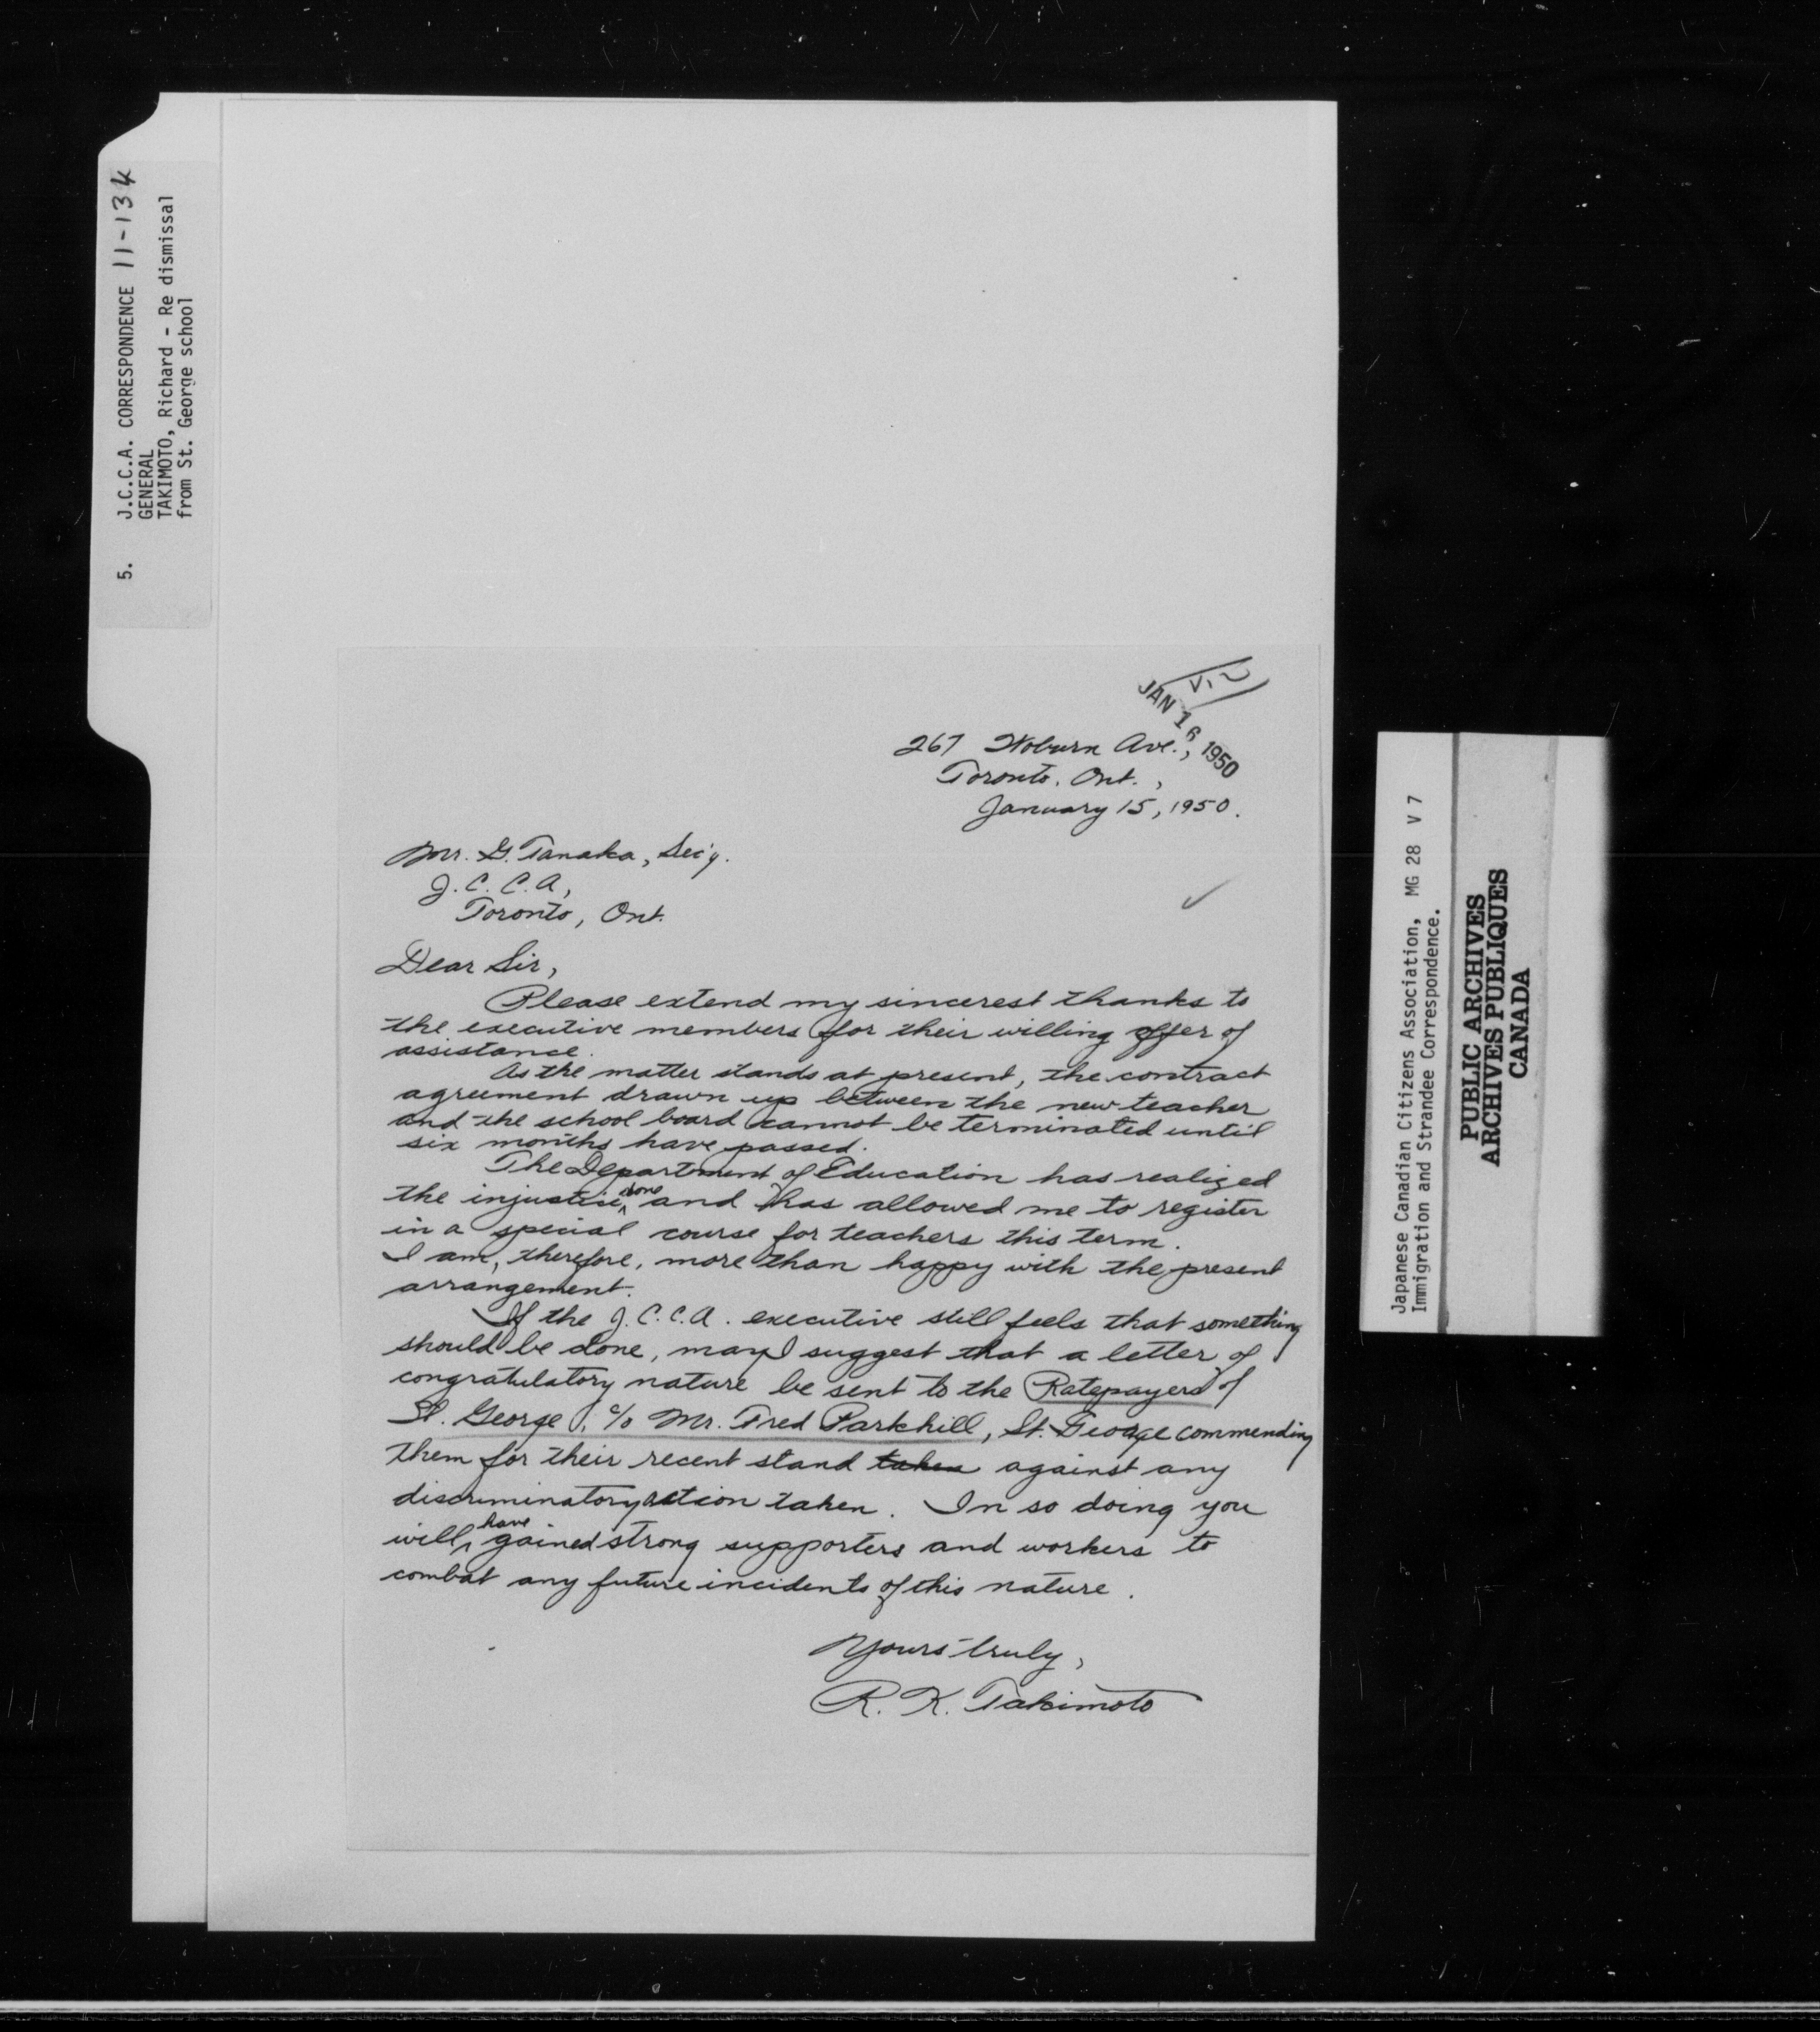 5. J.C.C.A. CORRESPONDENCE 11-13k
GENERAL
TAKIMOTO, Richard - Re dismissal
from St. George school
JAN 16 1950
267 Woburn Ave.,
Toronto, Ont.,
January 15, 1950.
Mr. G. Tanaka, Sec'y.
J. C. C. A,
Toronto, Ont.
Dear Sir,
Please extend my sincerest thanks to
the executive members for their willing offer of
assistance.
As the matter stands at present, the contract
agreement drawn up between the new teacher
and the school board cannot be terminated until
six months have passed.
The Department of Education has realized
the injustice done and has allowed me to register
in a special course for teachers this term.
I am, therefore, more than happy with the present
arrangement.
If the J. C. C. A. executive still feels that something
should be done, may I suggest that a letter of
congratulatory nature be sent to the Ratepayers of
St. George, c/o Mr. Fred Parkhill, St. George commending
them for their recent stand taken against any
discriminatory action taken. In so doing you
will have gained strong supporters and workers to
combat any future incidents of this nature.
Yours truly,
R. K. Takimoto
Japanese Canadian Citizens Association, MG 28 V 7
Immigration and Strandee Correspondence.
PUBLIC ARCHIVES
ARCHIVES PUBLIQUES
CANADA